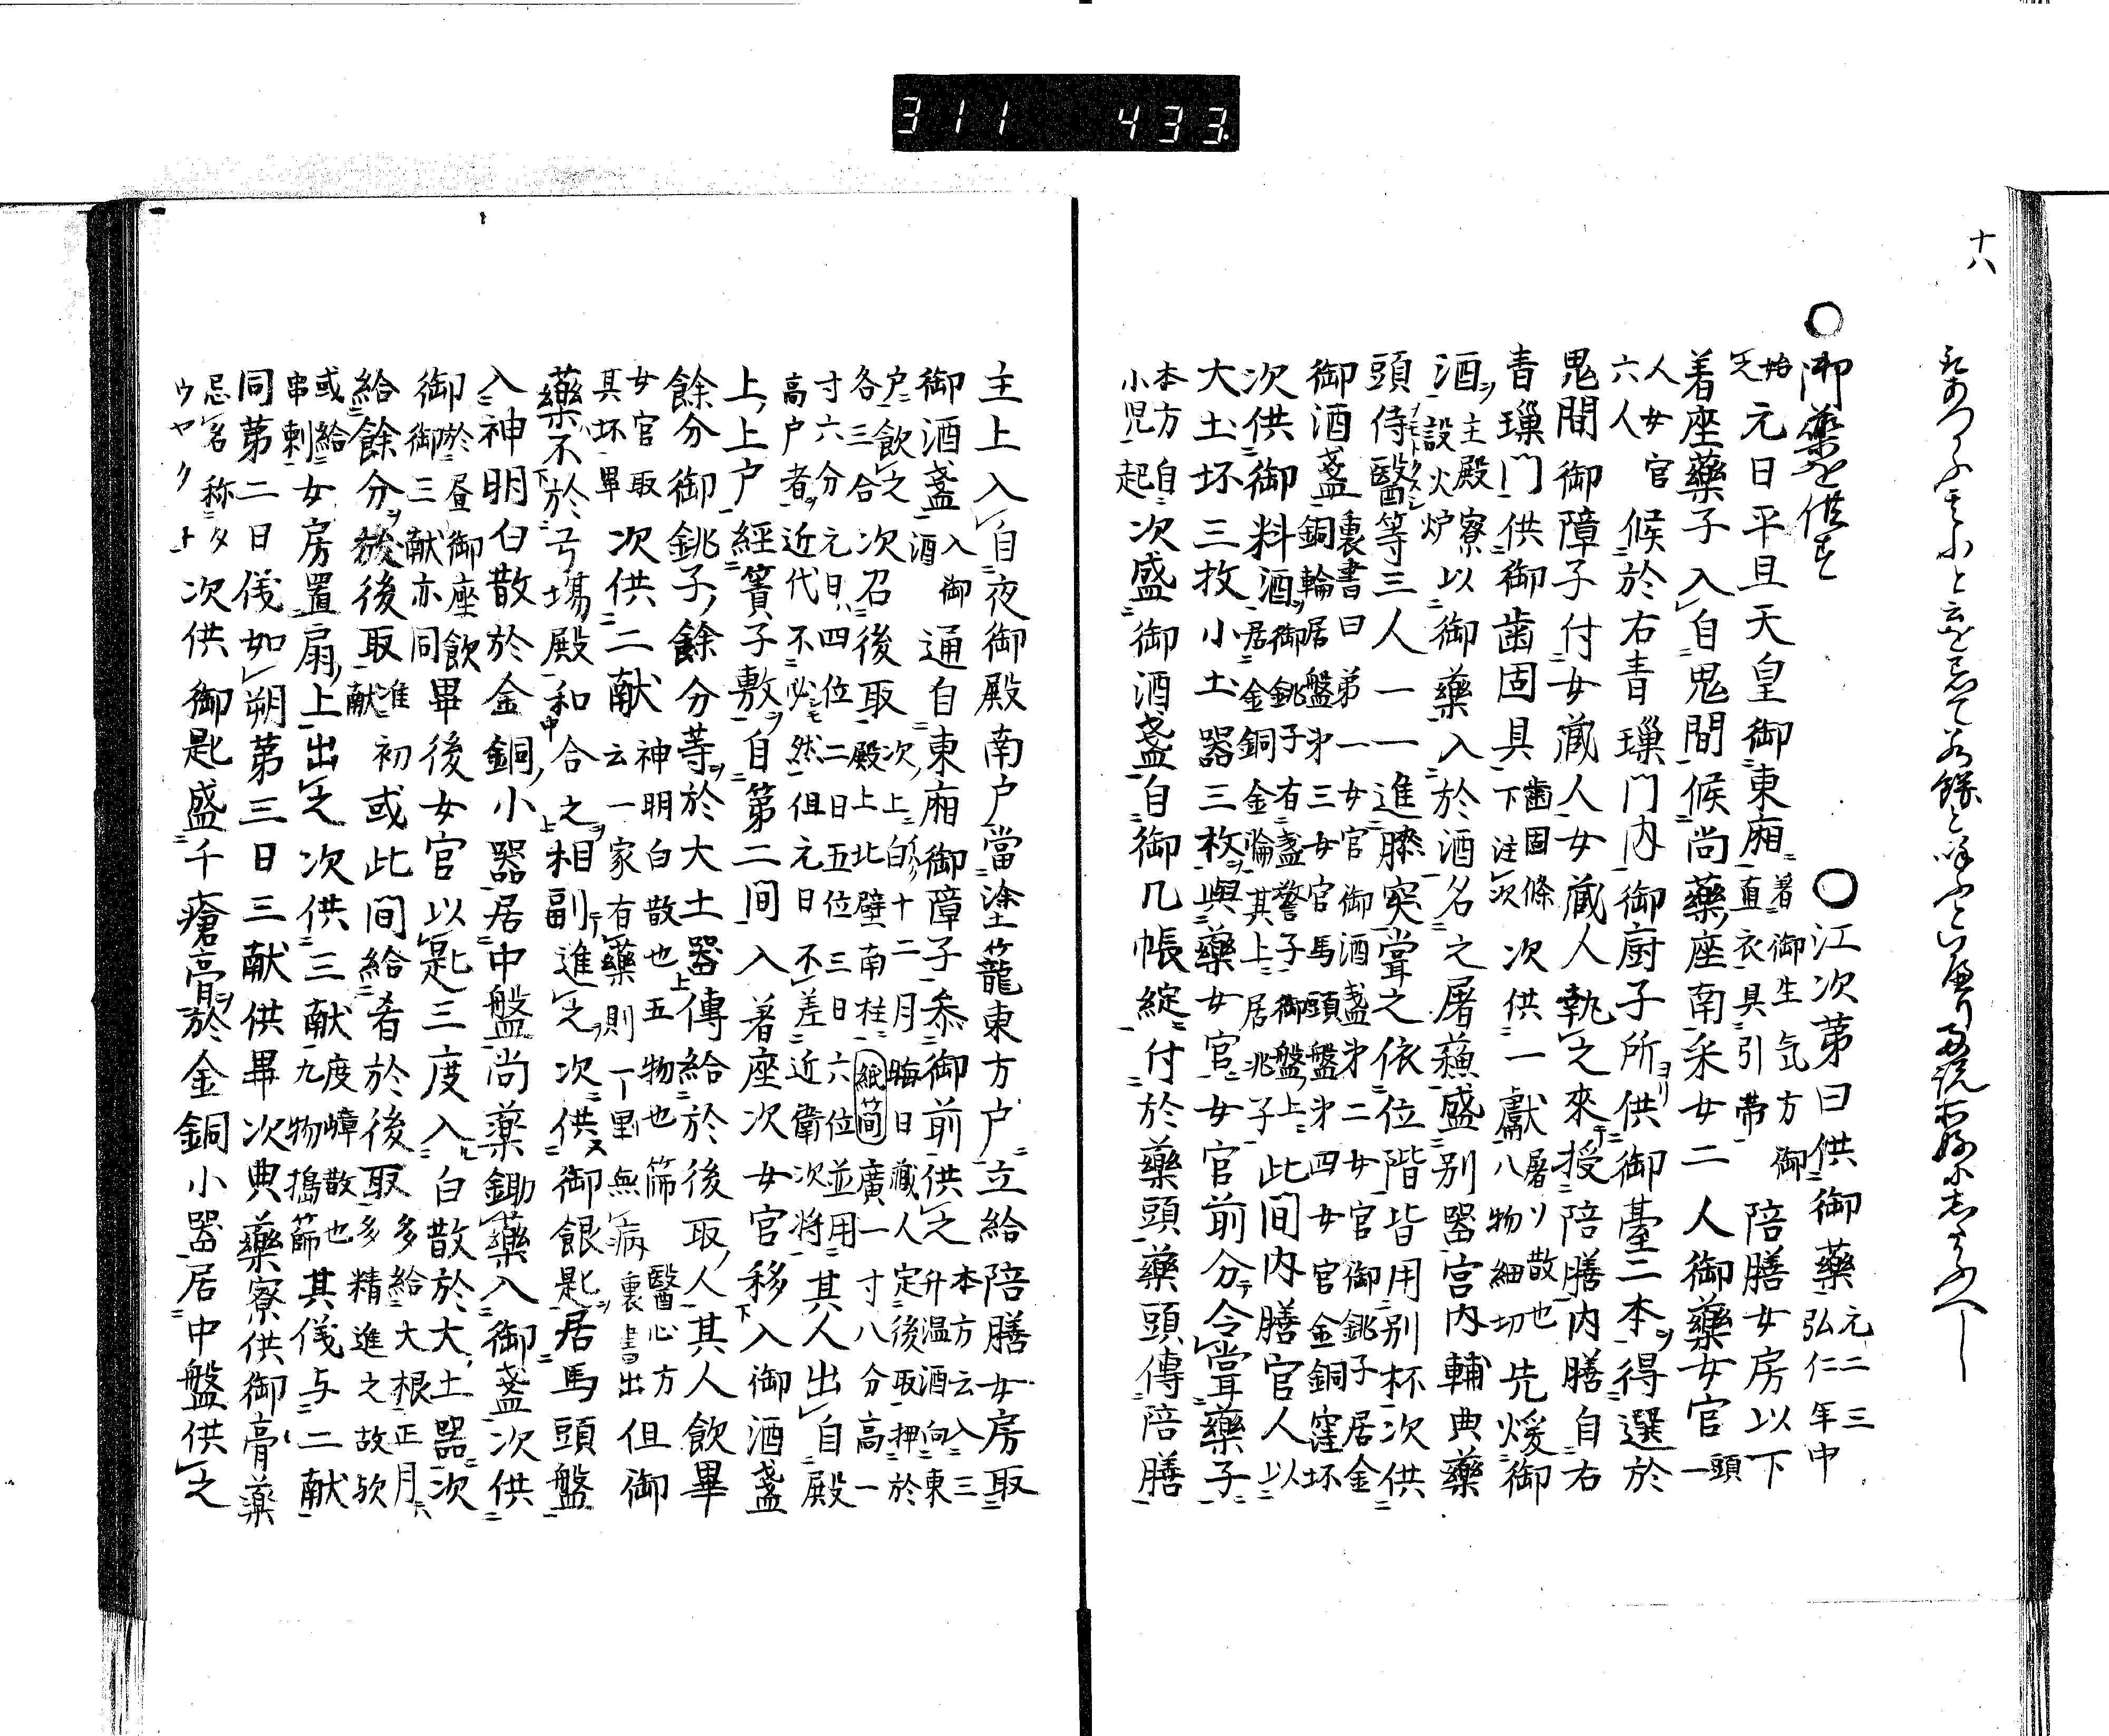 311 433
十八
○御藥を供す ○江次第曰供御藥元二三弘仁年中
始元日平旦天皇御東廂著御生气方御直衣具引帯陪膳女房以下
着座藥子入自鬼間候尚藥座南采女二人御藥女官一頭
人女官六人候於右青璅門内御厨子所供御臺二本得選於
鬼間御障子付女蔵人女蔵人執之來授陪膳内膳自右
青璅門供御歯固具歯固條下注次次供一獻屠ソ散也八物細切先煖御
酒主殿寮設火炉以御藥入於酒名之屠蘓盛別器宮内輔典藥
頭侍醫等三人一一進膝突甞之依位階皆用別杯次供
御酒盞裏書曰第一女官御酒盞㐧二女官御銚子居金銅輪居盤㐧三女官馬頭盤㐧四女官金銅窪坏
次供御料酒御銚子有盖警子御盤上居金銅金輪其上居兆子此間内膳官人以
大土坏三枚小土器三枚與藥女官女官前分令甞藥子
本方自小児起次盛御酒盞自御几帳綻付於藥頭藥頭傳陪膳
主上入自夜御殿南户當塗籠東方户立給陪膳女房取
御酒盞入御酒通自東廂御障子叅御前供之本方云入三升温酒向東
户飲之各三合次召後取次上白十二月晦日蔵人定後取押於殿上北壁南柱紙簡廣一寸八分高一
寸六分元日四位二日五位三日六位並用高户者近代不必然但元日不差近衛次将其人出自殿
上上户經簀子敷自第二間入着座次女官移入御酒盞
餘分御銚子餘分等於大土器傳給於後取人其人飲畢
女官取其坏畢次供二献神明白散也五物也篩醫心方云一家有藥則一里無病裏書出但御
藥不於弓塲殿和合之相副進之次供御銀匙居馬頭盤
入神明白散於金銅小器居中盤尚藥鋤藥入御盞次供
御於昼御座飲御三献亦同畢後女官以匙三度入白散於大土器次
給餘分於後取准献初或此間給肴於後取多給大根正月多精進之故欤
或給串刺女房置扇上出之次供三献度嶂散也九物搗篩其儀与二献
同第二日儀如朔第三日三献供畢次典藥寮供御膏藥
忌名称タウヤクト次供御匙盛千瘡膏於金銅小器居中盤供之